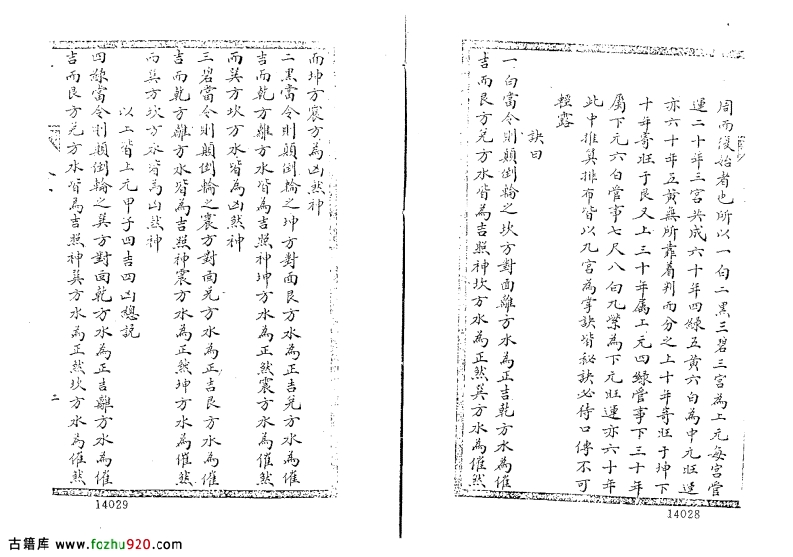 周而復始者也所以一白二黑三碧三宮為上元每宮管
運二十年三宮共成六十年四綠五黃六白為中元旺運
亦六十年五黃無所靠着判而分之上十年寄旺于坤下
十年寄旺于艮又上三十年屬上元四綠管事下三十年
屬下元六白管事七尺八白九紫為下元旺運亦六十年
此中推算排布皆以九宮為掌訣皆秘訣必待口傳不可
輕露
訣曰
一白當令則顛倒輪之坎方對面離方水為正吉乾方水為催
吉而艮方兌方水皆為吉照神坎方水為正煞巽方水為催煞
14028
而坤方震方為凶煞神
二黑當令則顛倒輪之坤方對面艮方水為正吉兌方水為催
吉而乾方離方水為吉照神坤方水為正煞震方水為催煞
而巽方坎方水皆為凶煞神
三碧當令則顛倒輪之震方對面兌方水為正吉艮方水為催
吉而乾方離方水皆為吉照神震方水為正煞坤方水為催煞
而巽方坎方水皆為凶煞神
以上皆上元甲子四吉四凶總說
四綠當令則顛倒輪之巽方對面乾方水為正吉離方水為催
吉而艮方兌方水皆為吉照神巽方水為正煞坎方水為催煞
二
14029
古籍库 www.fozhu920.com